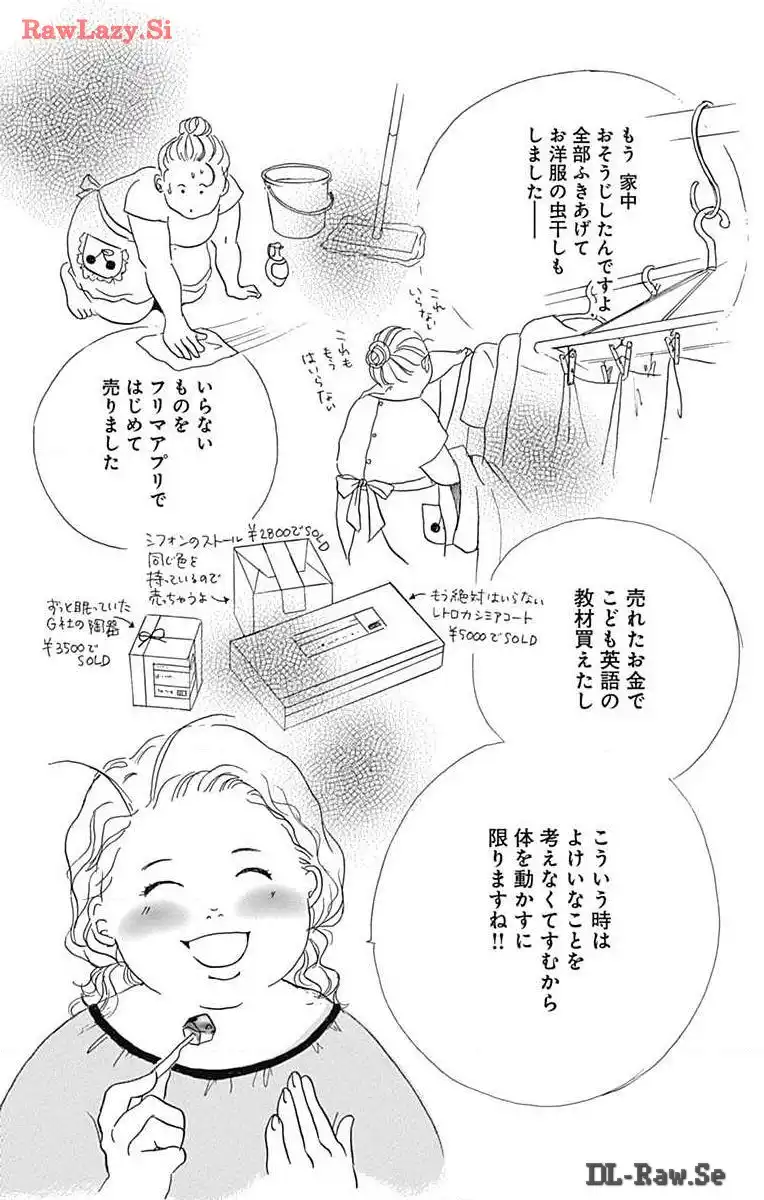 RawLazy.Si
もう 家中
おそうじしたんですよ
全部ふきあげて
お洋服の虫干しも
しました――
これ
いらない
これも
もう
はいらない
いらない
ものを
フリマアプリで
はじめて
売りました
シフォンのストール ¥2800でSOLD
同じ色を
持っているので
売っちゃうよ
もう絶対はいらない
レトロカシミアコート
¥5000でSOLD
ずっと眠っていた
G社の陶器
¥3500で
SOLD
売れたお金で
こども英語の
教材買えたし
こういう時は
よけいなことを
考えなくてすむから
体を動かすに
限りますね!!
DL-Raw.Se